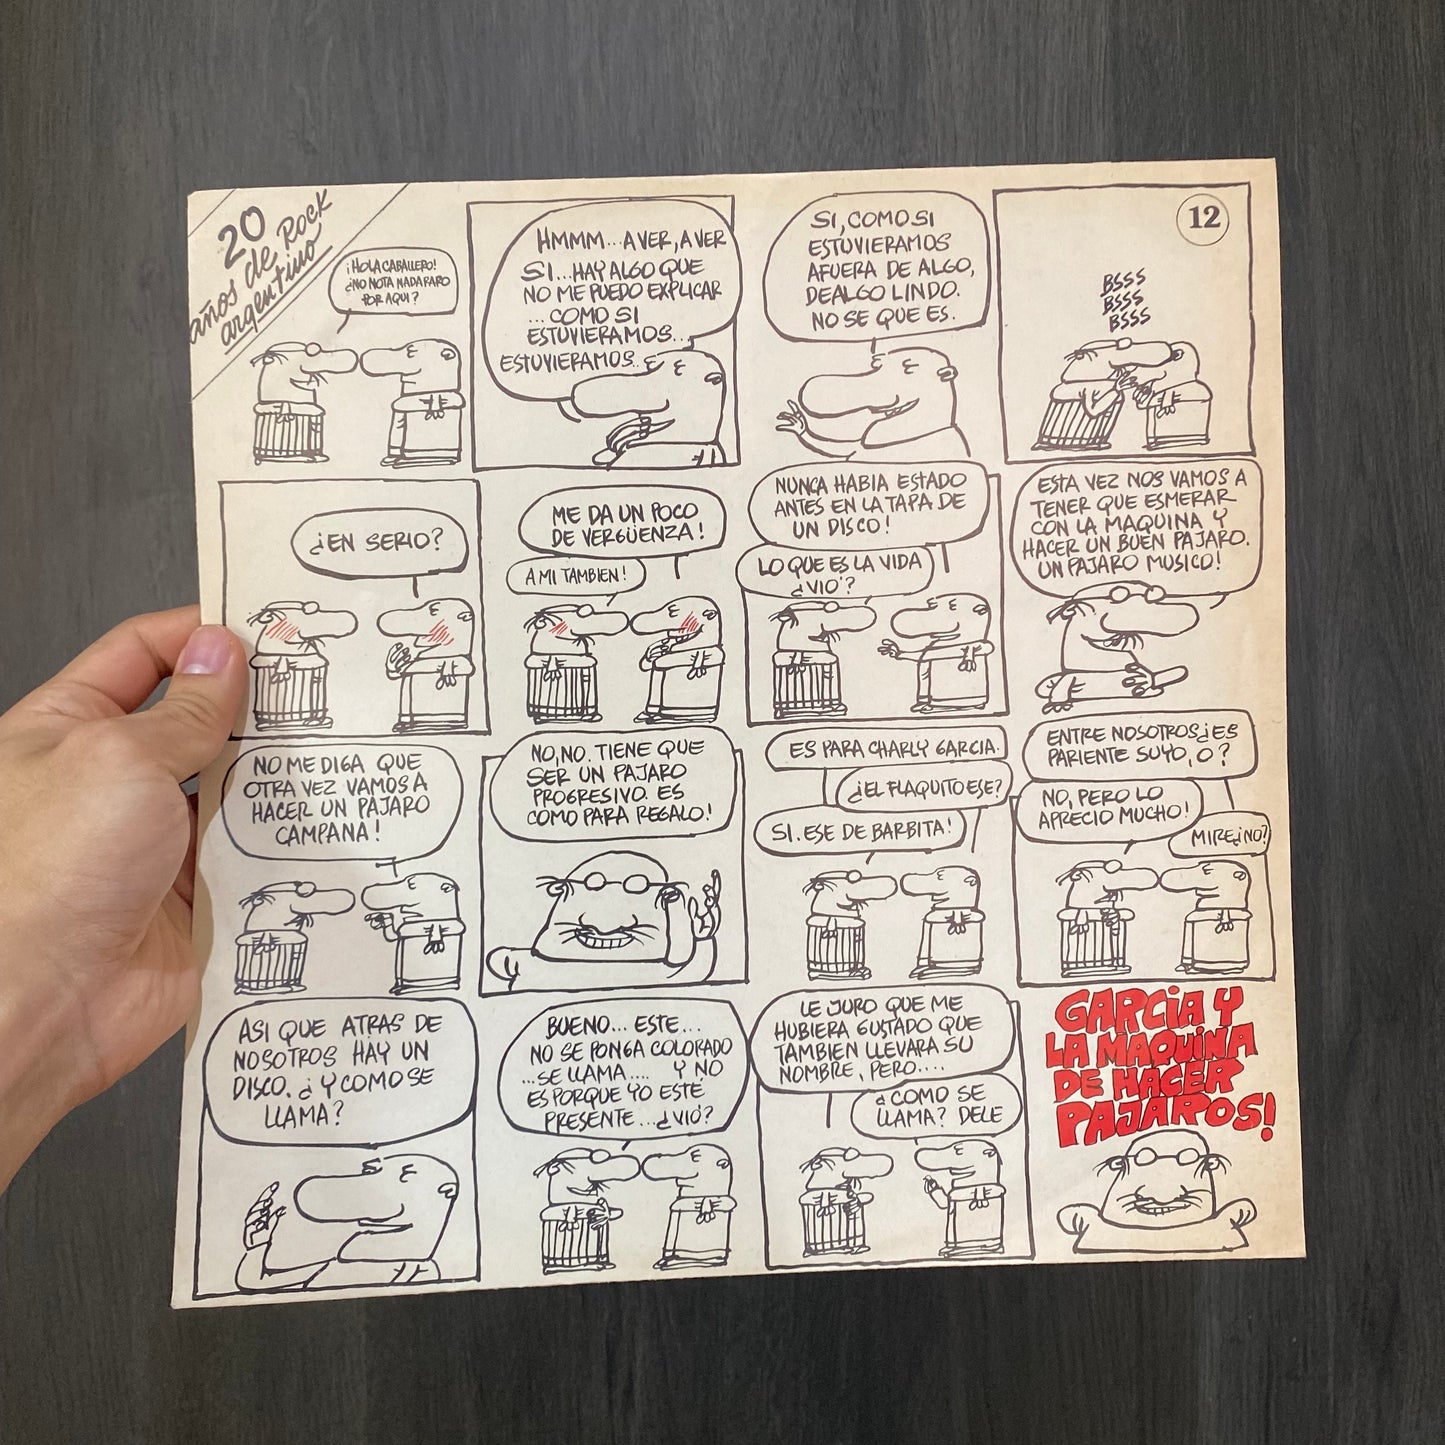 20
años de Rock
argentino
¡HOLA CABALLERO!
¿NO NOTA NADA RARO
POR AQUI?
HMMM...A VER, A VER
SI...HAY ALGO QUE
NO ME PUEDO EXPLICAR
...COMO SI
ESTUVIERAMOS...
ESTUVIERAMOS..
SI, COMO SI
ESTUVIERAMOS
AFUERA DE ALGO,
DE ALGO LINDO.
NO SE QUE ES.
12
BSSS
BSSS
BSSS
¿EN SERIO?
ME DA UN POCO
DE VERGÜENZA!
A MI TAMBIEN!
NUNCA HABIA ESTADO
ANTES EN LA TAPA DE
UN DISCO!
LO QUE ES LA VIDA
¿VIO'?
ESTA VEZ NOS VAMOS A
TENER QUE ESMERAR
CON LA MAQUINA Y
HACER UN BUEN PAJARO.
UN PAJARO MUSICO!
NO ME DIGA QUE
OTRA VEZ VAMOS A
HACER UN PAJARO
CAMPANA!
NO, NO. TIENE QUE
SER UN PAJARO
PROGRESIVO. ES
COMO PARA REGALO!
ES PARA CHARLY GARCIA.
¿EL FLAQUITO ESE?
SI. ESE DE BARBITA!
ENTRE NOSOTROS ¿ES
PARIENTE SUYO, O?
NO, PERO LO
APRECIO MUCHO!
MIRE ¿NO?
ASI QUE ATRAS DE
NOSOTROS HAY UN
DISCO. ¿Y COMO SE
LLAMA?
BUENO... ESTE...
NO SE PONGA COLORADO
...SE LLAMA.... Y NO
ES PORQUE YO ESTÉ
PRESENTE...¿VIO'?
LE JURO QUE ME
HUBIERA GUSTADO QUE
TAMBIEN LLEVARA SU
NOMBRE, PERO....
¿COMO SE
LLAMA? DELE
GARCIA Y
LA MAQUINA
DE HACER
PAJAROS!